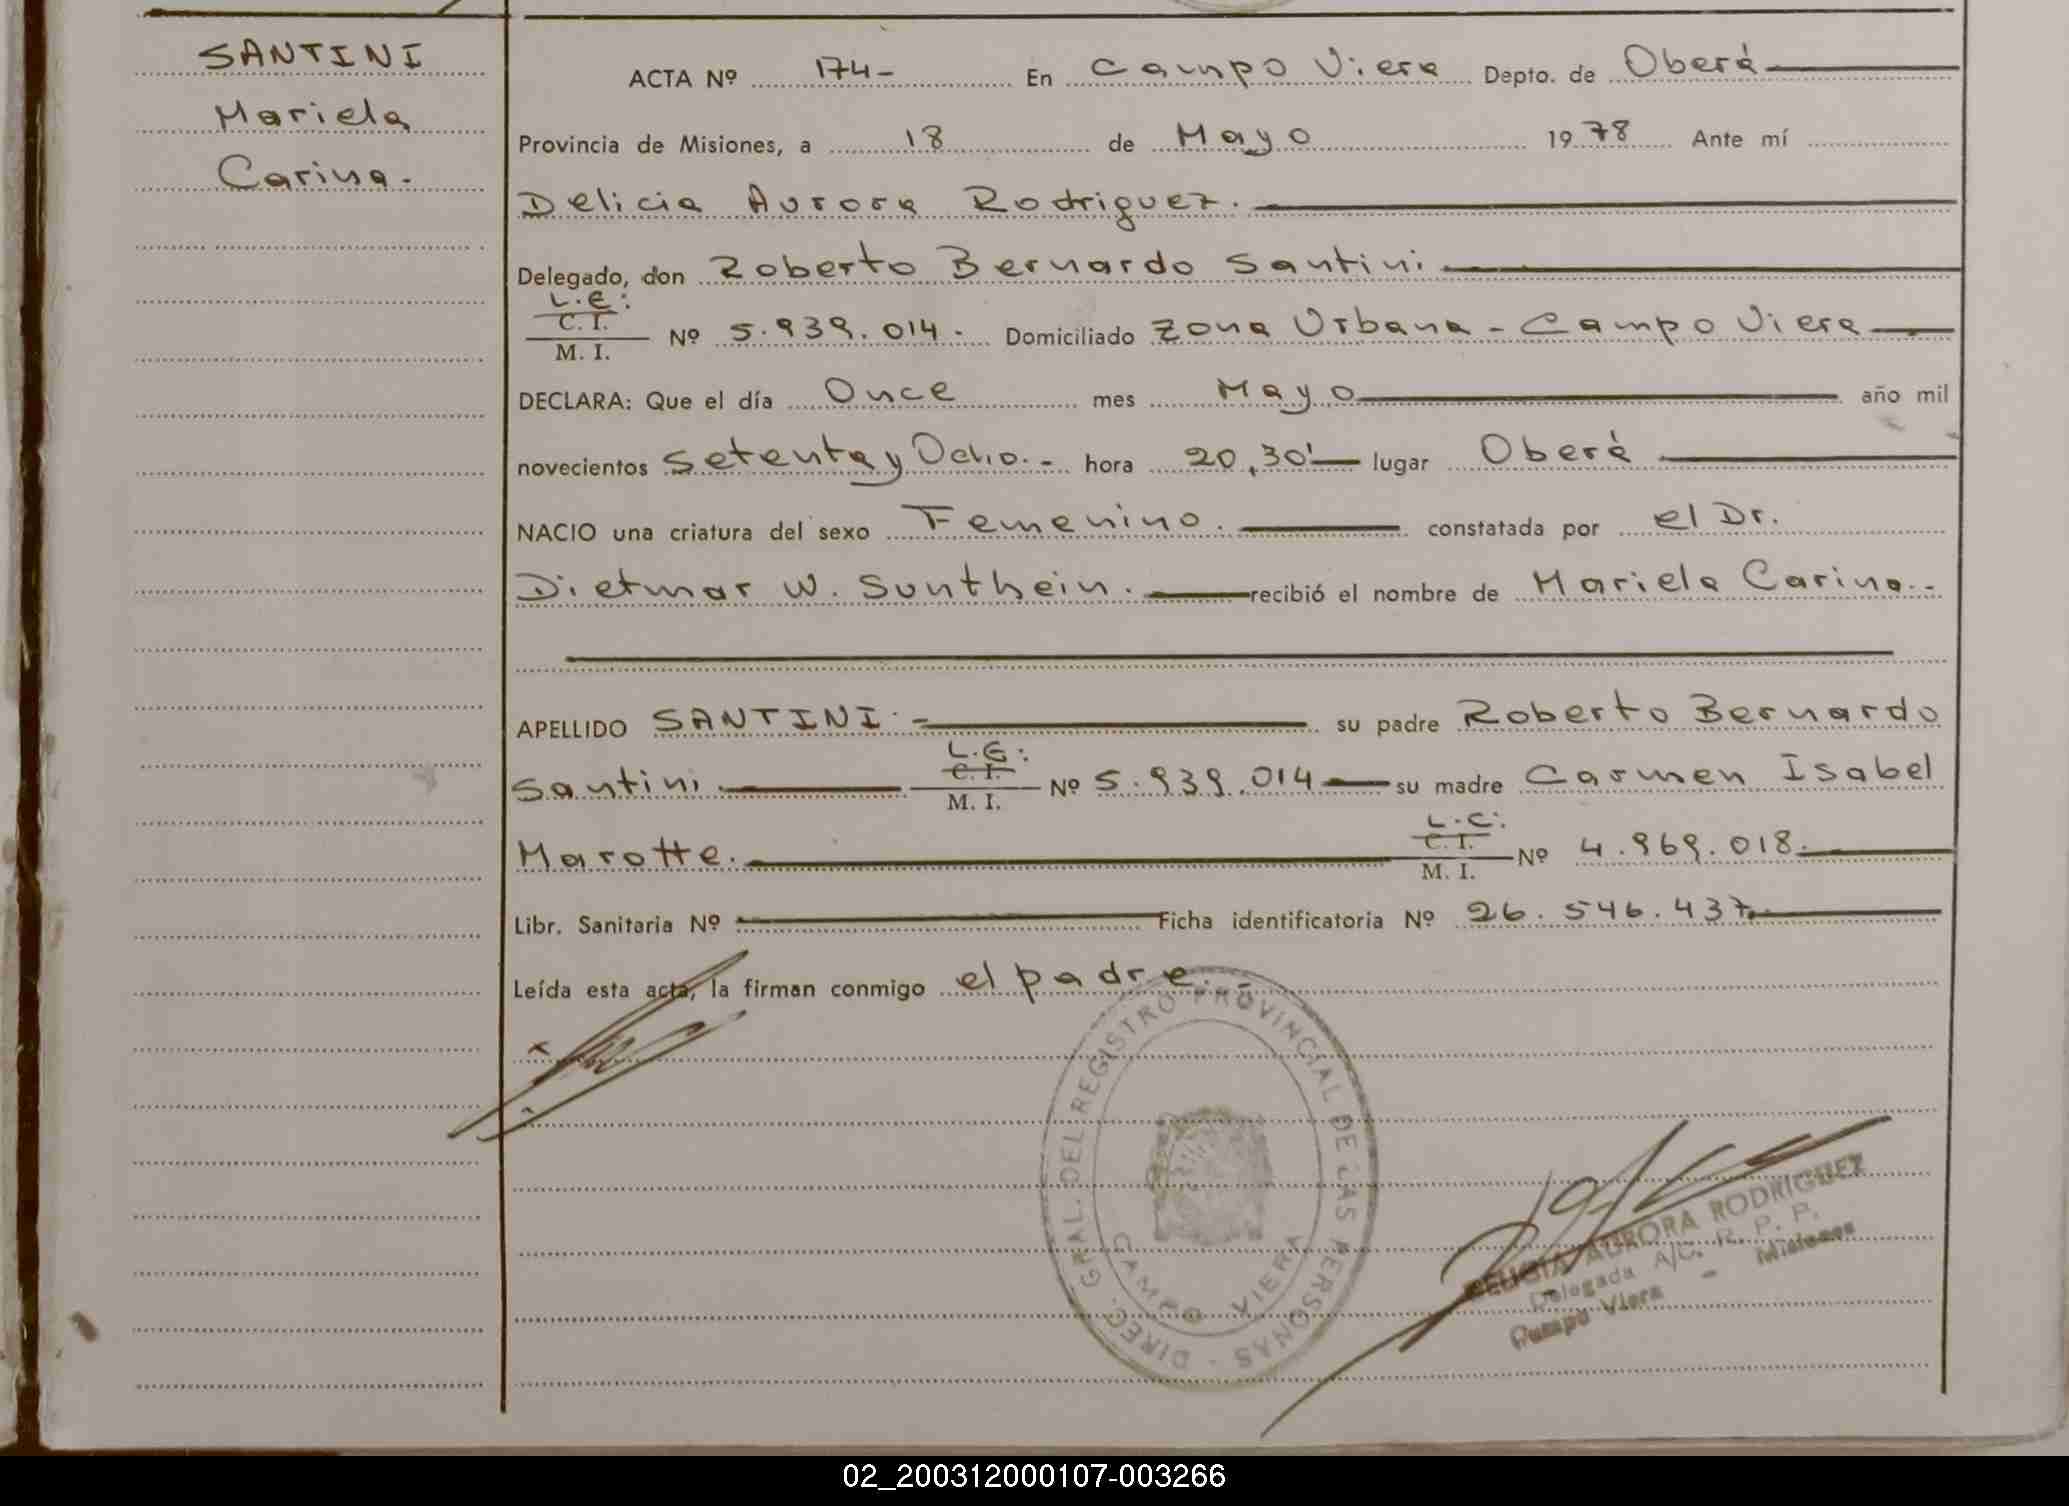 SANTINI
Mariela
Carina.
ACTA Nº 174- En Campo Viera Depto. de Oberá
Provincia de Misiones, a 18 de Mayo 1978 Ante mí
Delicia Aurora Rodriguez.
Delegado, don Roberto Bernardo Santini
L.E:
C. I.
M. I. Nº 5.939.014. Domiciliado Zona Urbana - Campo Viera
DECLARA: Que el día Once mes Mayo año mil
novecientos Setenta y Ocho.- hora 20,30' lugar Oberá
NACIO una criatura del sexo Femenino. constatada por el Dr.
Dietmar W. Sonthein. recibió el nombre de Mariela Carina.-
APELLIDO SANTINI.- su padre Roberto Bernardo
Santini L.E: C. I. M. I. Nº 5.939.014 su madre Carmen Isabel
Marotte. L.C: C. I. M. I. Nº 4.969.018.
Libr. Sanitaria Nº Ficha identificatoria Nº 26.546.437
Leída esta acta, la firman conmigo el padre.-
DIREC. GRAL. DEL REGISTRO PROVINCIAL DE LAS PERSONAS -
CAMPO VIERA
DELICIA AURORA RODRIGUEZ
Delegada A/C. R. P. P.
Campo Viera - Misiones
02_200312000107-003266